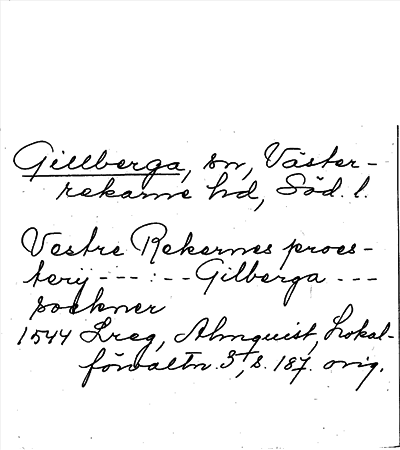 Gillberga, sn, Väster-
rekarne hd, Söd. l.
Vestre Rekernes proes-
terij ---:-- Gilberga ---
sockner
1544 Lreg, Almquist, Lokal-
förvaltn. 3, s. 187. orig.